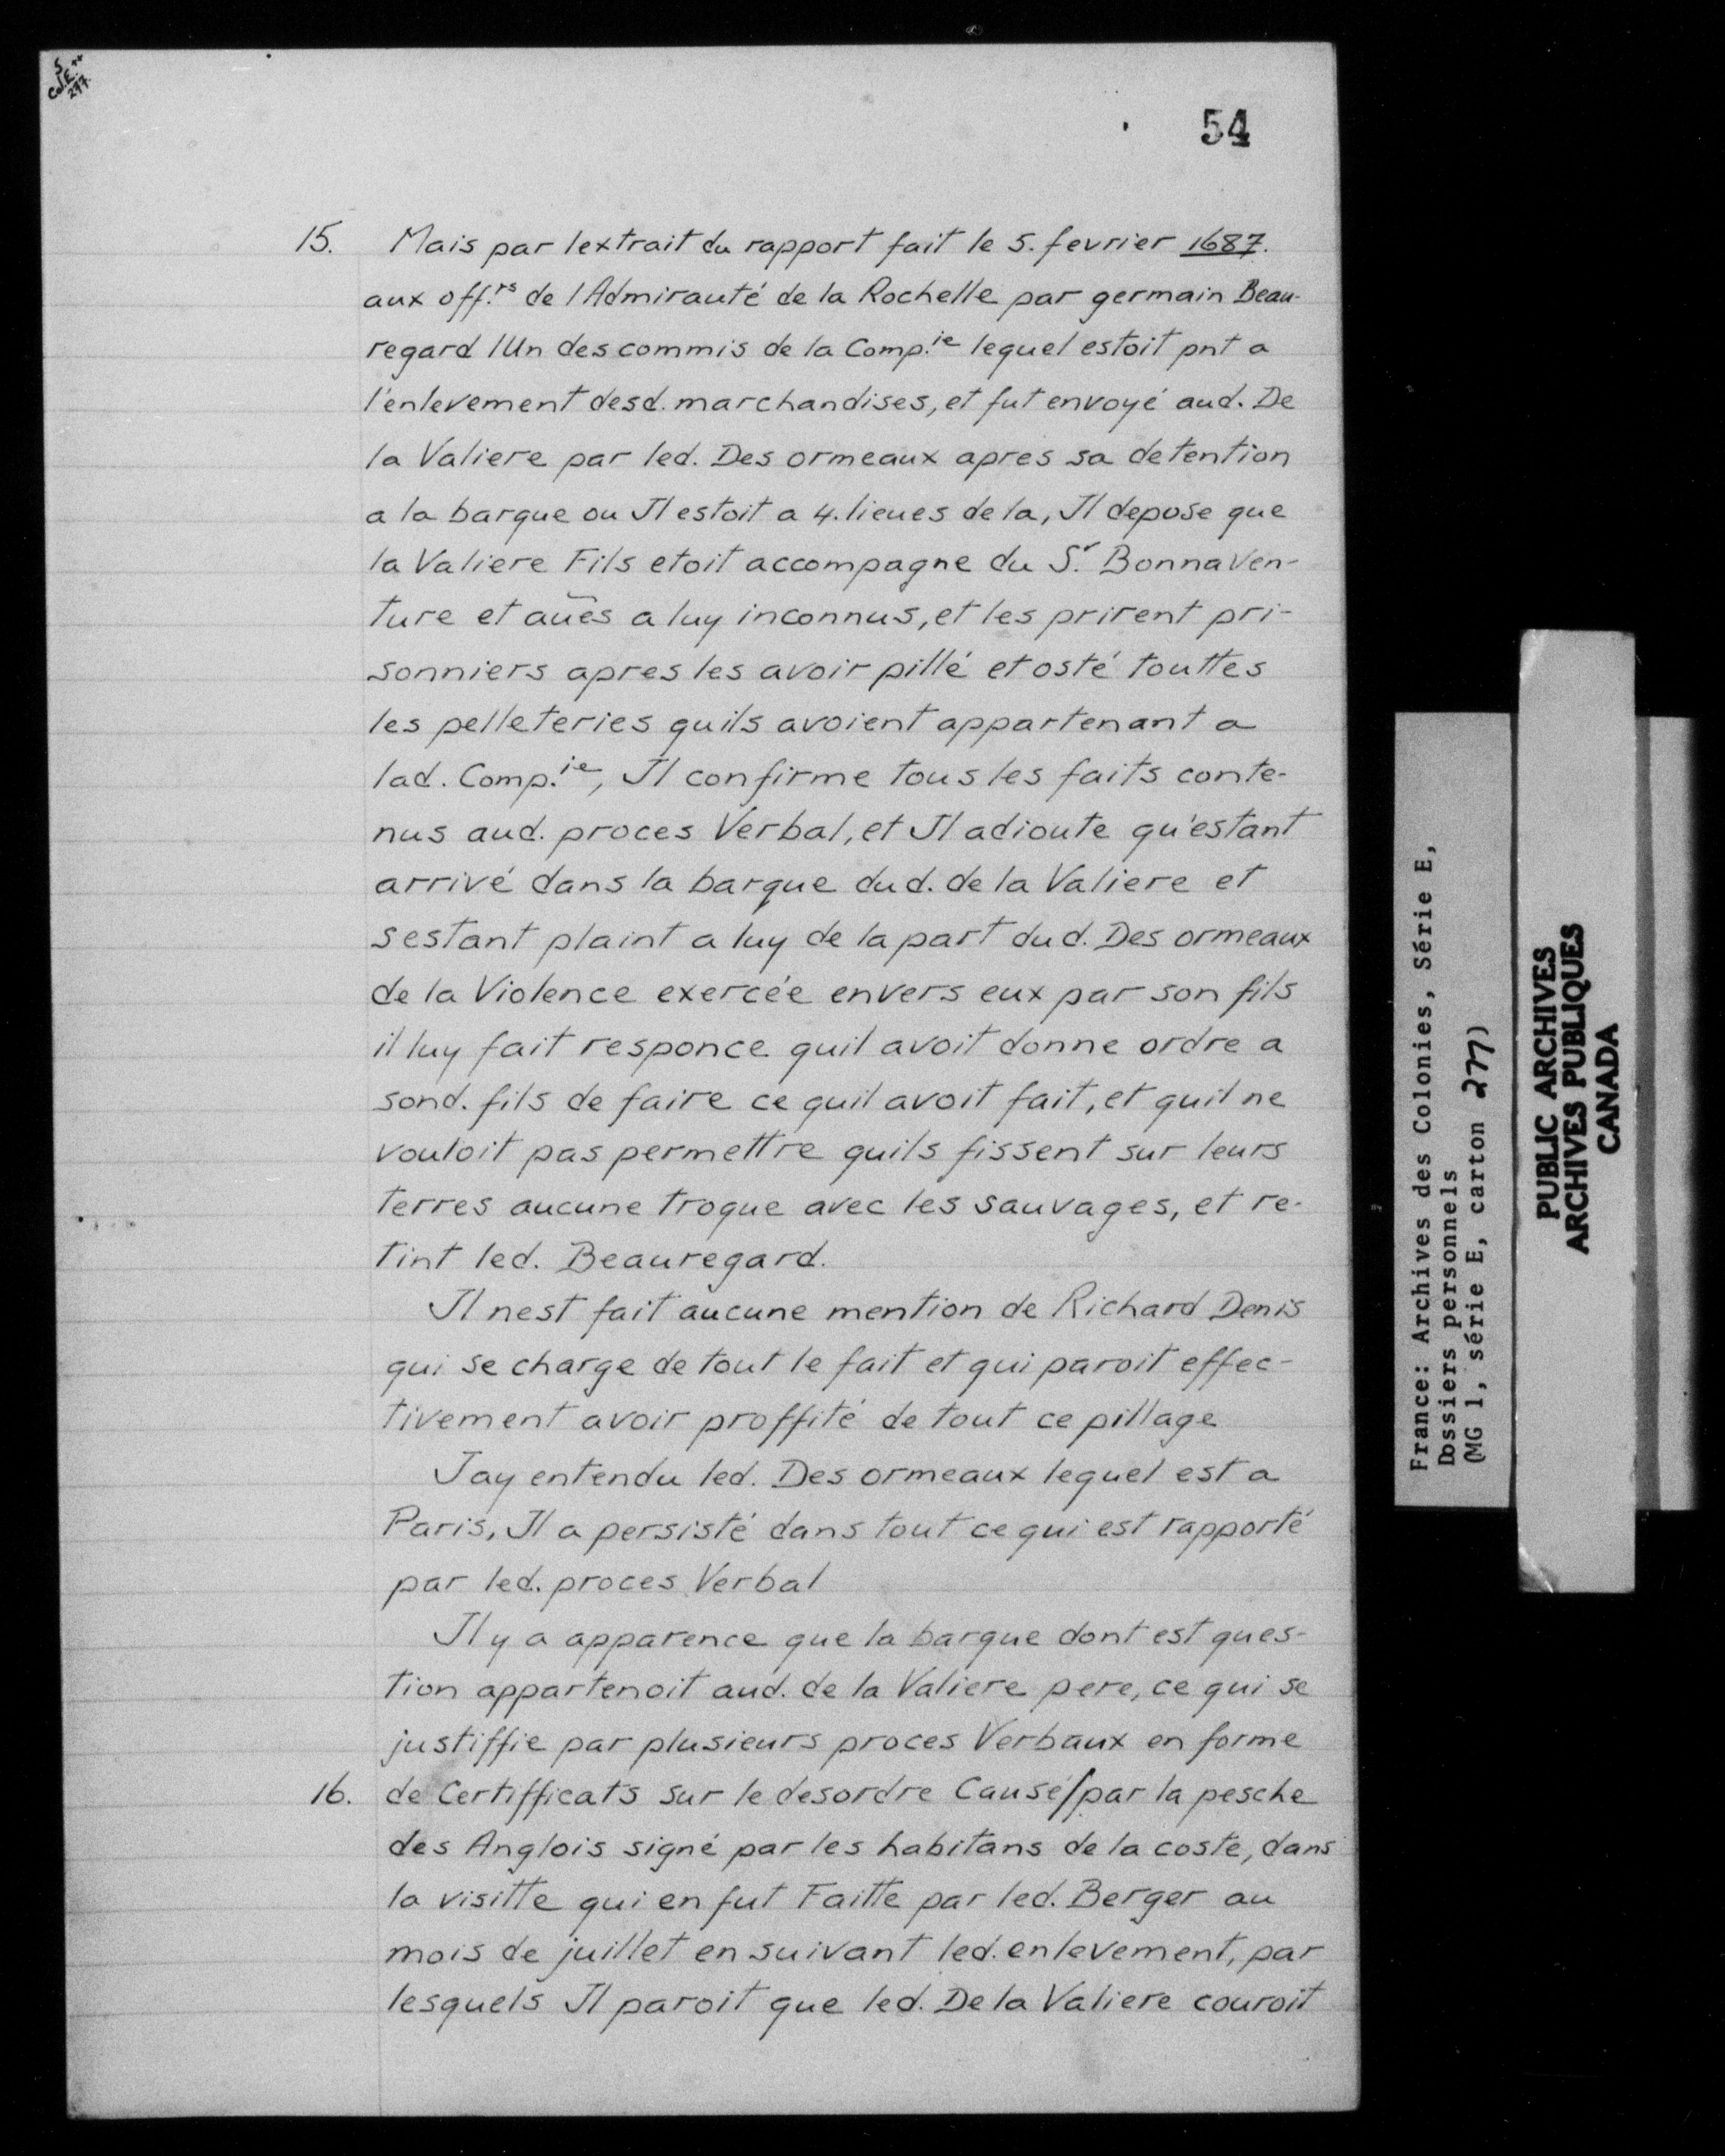 S
Col. E
277.
54
15. Mais par lextrait du rapport fait le 5. fevrier 1687.
aux off.rs de lAdmirauté de la Rochelle par germain Beau-
regard lUn des commis de la Comp.ie lequel estoit pnt a
l'enlevement desd. marchandises, et fut envoyé aud. De
la Valiere par led. Des ormeaux apres sa detention
a la barque ou Jl estoit a 4. lieues de la, Jl depose que
la Valiere Fils etoit accompagne du Sr. Bonnaven-
ture et aũes a luy inconnus, et les prirent pri-
sonniers apres les avoir pillé et osté touttes
les pelleteries quils avoient appartenant a
lad. Comp.ie, Jl confirme tous les faits conte-
nus aud. proces Verbal, et Jl adioute qu'estant
arrivé dans la barque dud. de la Valiere et
sestant plaint a luy de la part dud. Des ormeaux
de la Violence exercée envers eux par son fils
il luy fait responce quil avoit donne ordre a
sond. fils de faire ce quil avoit fait, et quil ne
vouloit pas permettre quils fissent sur leurs
terres aucune troque avec les sauvages, et re-
tint led. Beauregard.
Jl nest fait aucune mention de Richard Denis
qui se charge de tout le fait et qui paroit effec-
tivement avoir proffité de tout ce pillage
Jay entendu led. Des ormeaux lequel est a
Paris, Jl a persisté dans tout ce qui est rapporté
par led. proces Verbal
Jl y a apparence que la barque dont est ques-
tion appartenoit aud. de la Valiere pere, ce qui se
justiffie par plusieurs proces Verbaux en forme
16. de Certifficats sur le desordre Causé/par la pesche
des Anglois signé par les habitans de la coste, dans
la visitte qui en fut Faitte par led. Berger au
mois de juillet en suivant led. enlevement, par
lesquels Jl paroit que led. De la Valiere couroit
France: Archives des Colonies, Série E,
Dossiers personnels
(MG 1, série E, carton 277)
PUBLIC ARCHIVES
ARCHIVES PUBLIQUES
CANADA